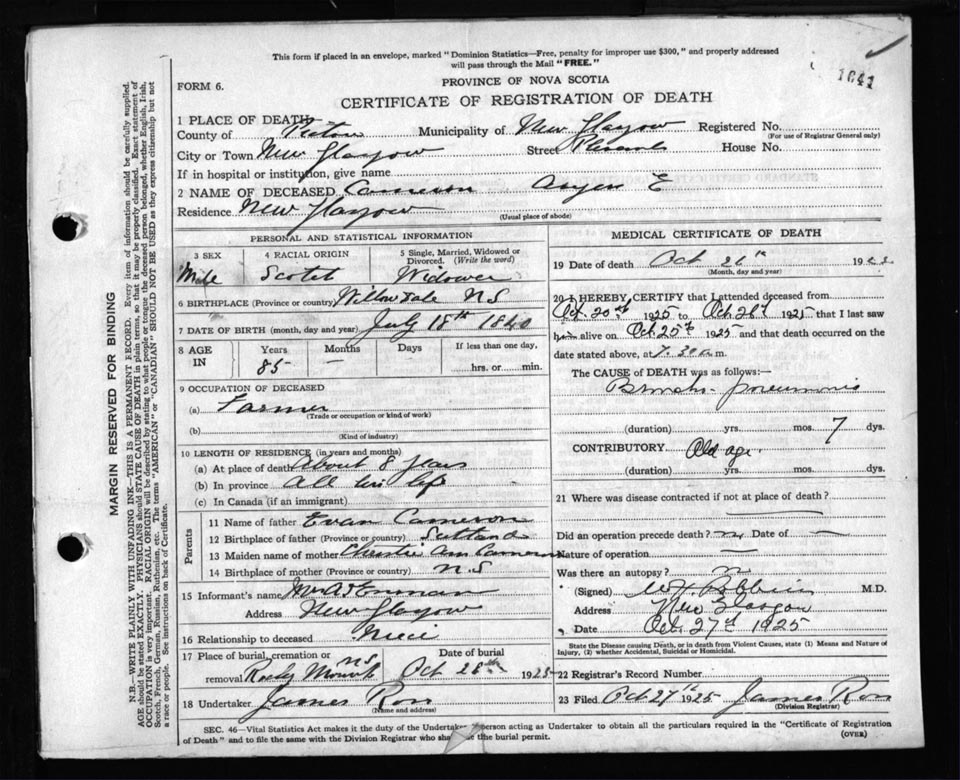 This form if placed in an envelope, marked "Dominion Statistics—Free, penalty for improper use $300," and properly addressed
will pass through the Mail "FREE."
1641
FORM 6.
PROVINCE OF NOVA SCOTIA
CERTIFICATE OF REGISTRATION OF DEATH
1 PLACE OF DEATH
County of Pictou Municipality of New Glasgow Registered No.
(For use of Registrar General only)
City or Town New Glasgow Street House No.
If in hospital or institution, give name
2 NAME OF DECEASED Cameron E
Residence New Glasgow
(Usual place of abode)
PERSONAL AND STATISTICAL INFORMATION
3 SEX 4 RACIAL ORIGIN 5 Single, Married, Widowed or Divorced. (Write the word)
Male Scotch Widower
6 BIRTHPLACE (Province or country) Willowdale N S
7 DATE OF BIRTH (month, day and year) July 18th 1840
8 AGE IN Years Months Days If less than one day,
85 — hrs. or min.
9 OCCUPATION OF DECEASED
(a) Farmer
(Trade or occupation or kind of work)
(b)
(Kind of industry)
10 LENGTH OF RESIDENCE (in years and months)
(a) At place of death About 8 years
(b) In province All his life
(c) In Canada (if an immigrant)
Parents
11 Name of father Evan Cameron
12 Birthplace of father (Province or country)
13 Maiden name of mother Christie Ann Cameron
14 Birthplace of mother (Province or country) N.S
15 Informant's name
Address New Glasgow
16 Relationship to deceased Niece
17 Place of burial, cremation or removal Rocky Mount N S
Date of burial Oct 28th 1925
18 Undertaker James Ross
(Name and address)
MEDICAL CERTIFICATE OF DEATH
19 Date of death Oct 26th 1925
(Month, day and year)
20 I HEREBY CERTIFY that I attended deceased from
Oct. 20th 1925 to Oct 26th 1925 that I last saw
him alive on Oct 25th 1925 and that death occurred on
date stated above, at 7.30 a m.
The CAUSE of DEATH was as follows:—
Broncho-pneumonia
(duration) yrs. mos. 7 dys.
CONTRIBUTORY Old age.
(duration) yrs. mos. dys.
21 Where was disease contracted if not at place of death?
Did an operation precede death? no Date of —
Nature of operation —
Was there an autopsy? no
(Signed) M.D.
Address New Glasgow
Date Oct. 27th 1925
State the Disease causing Death, or in death from Violent Causes, state (1) Means and Nature of
Injury, (2) whether Accidental, Suicidal or Homicidal.
22 Registrar's Record Number
23 Filed Oct 27th 1925 James Ross
(Division Registrar)
SEC. 46—Vital Statistics Act makes it the duty of the Undertaker person acting as Undertaker to obtain all the particulars required in the "Certificate of Registration
of Death" and to file the same with the Division Registrar who the burial permit.
(OVER)
MARGIN RESERVED FOR BINDING
N.B.—WRITE PLAINLY WITH UNFADING INK—THIS IS A PERMANENT RECORD. Every item of information should be carefully supplied.
AGE should be stated EXACTLY. PHYSICIANS should STATE CAUSE OF DEATH in plain terms, so that it may be properly classified. Exact statement of
OCCUPATION is very important. RACIAL ORIGIN will be described by stating to what people or tongue the deceased person belonged, whether English, Irish,
Scotch, French, German, Russian, Ruthenian, etc. The terms "AMERICAN" or "CANADIAN" SHOULD NOT BE USED as they express citizenship but not
a race or people. See instructions on back of Certificate.